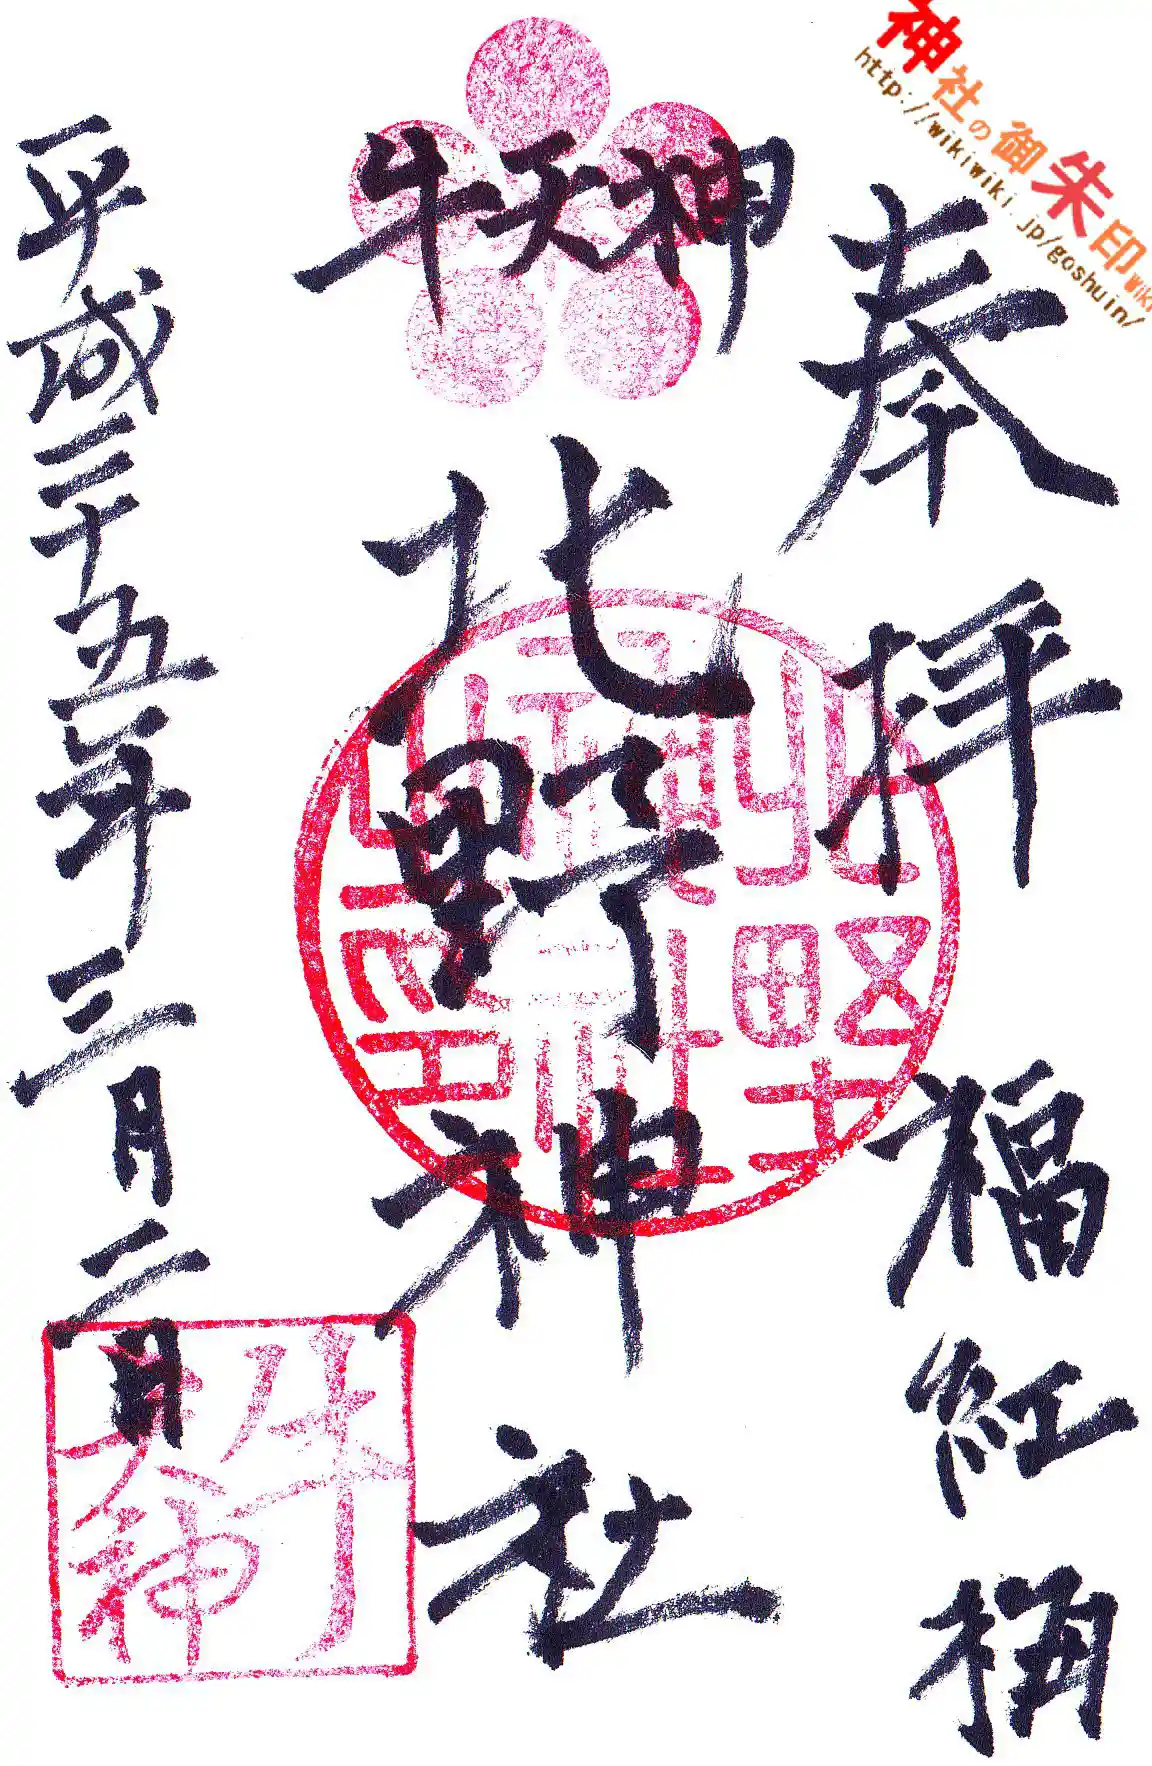 神社の御朱印wiki
http://wikiwiki.jp/goshuin/
奉拝
福紅梅
牛天神
北野神社
平成二十五年三月二日
北野神社
牛天神